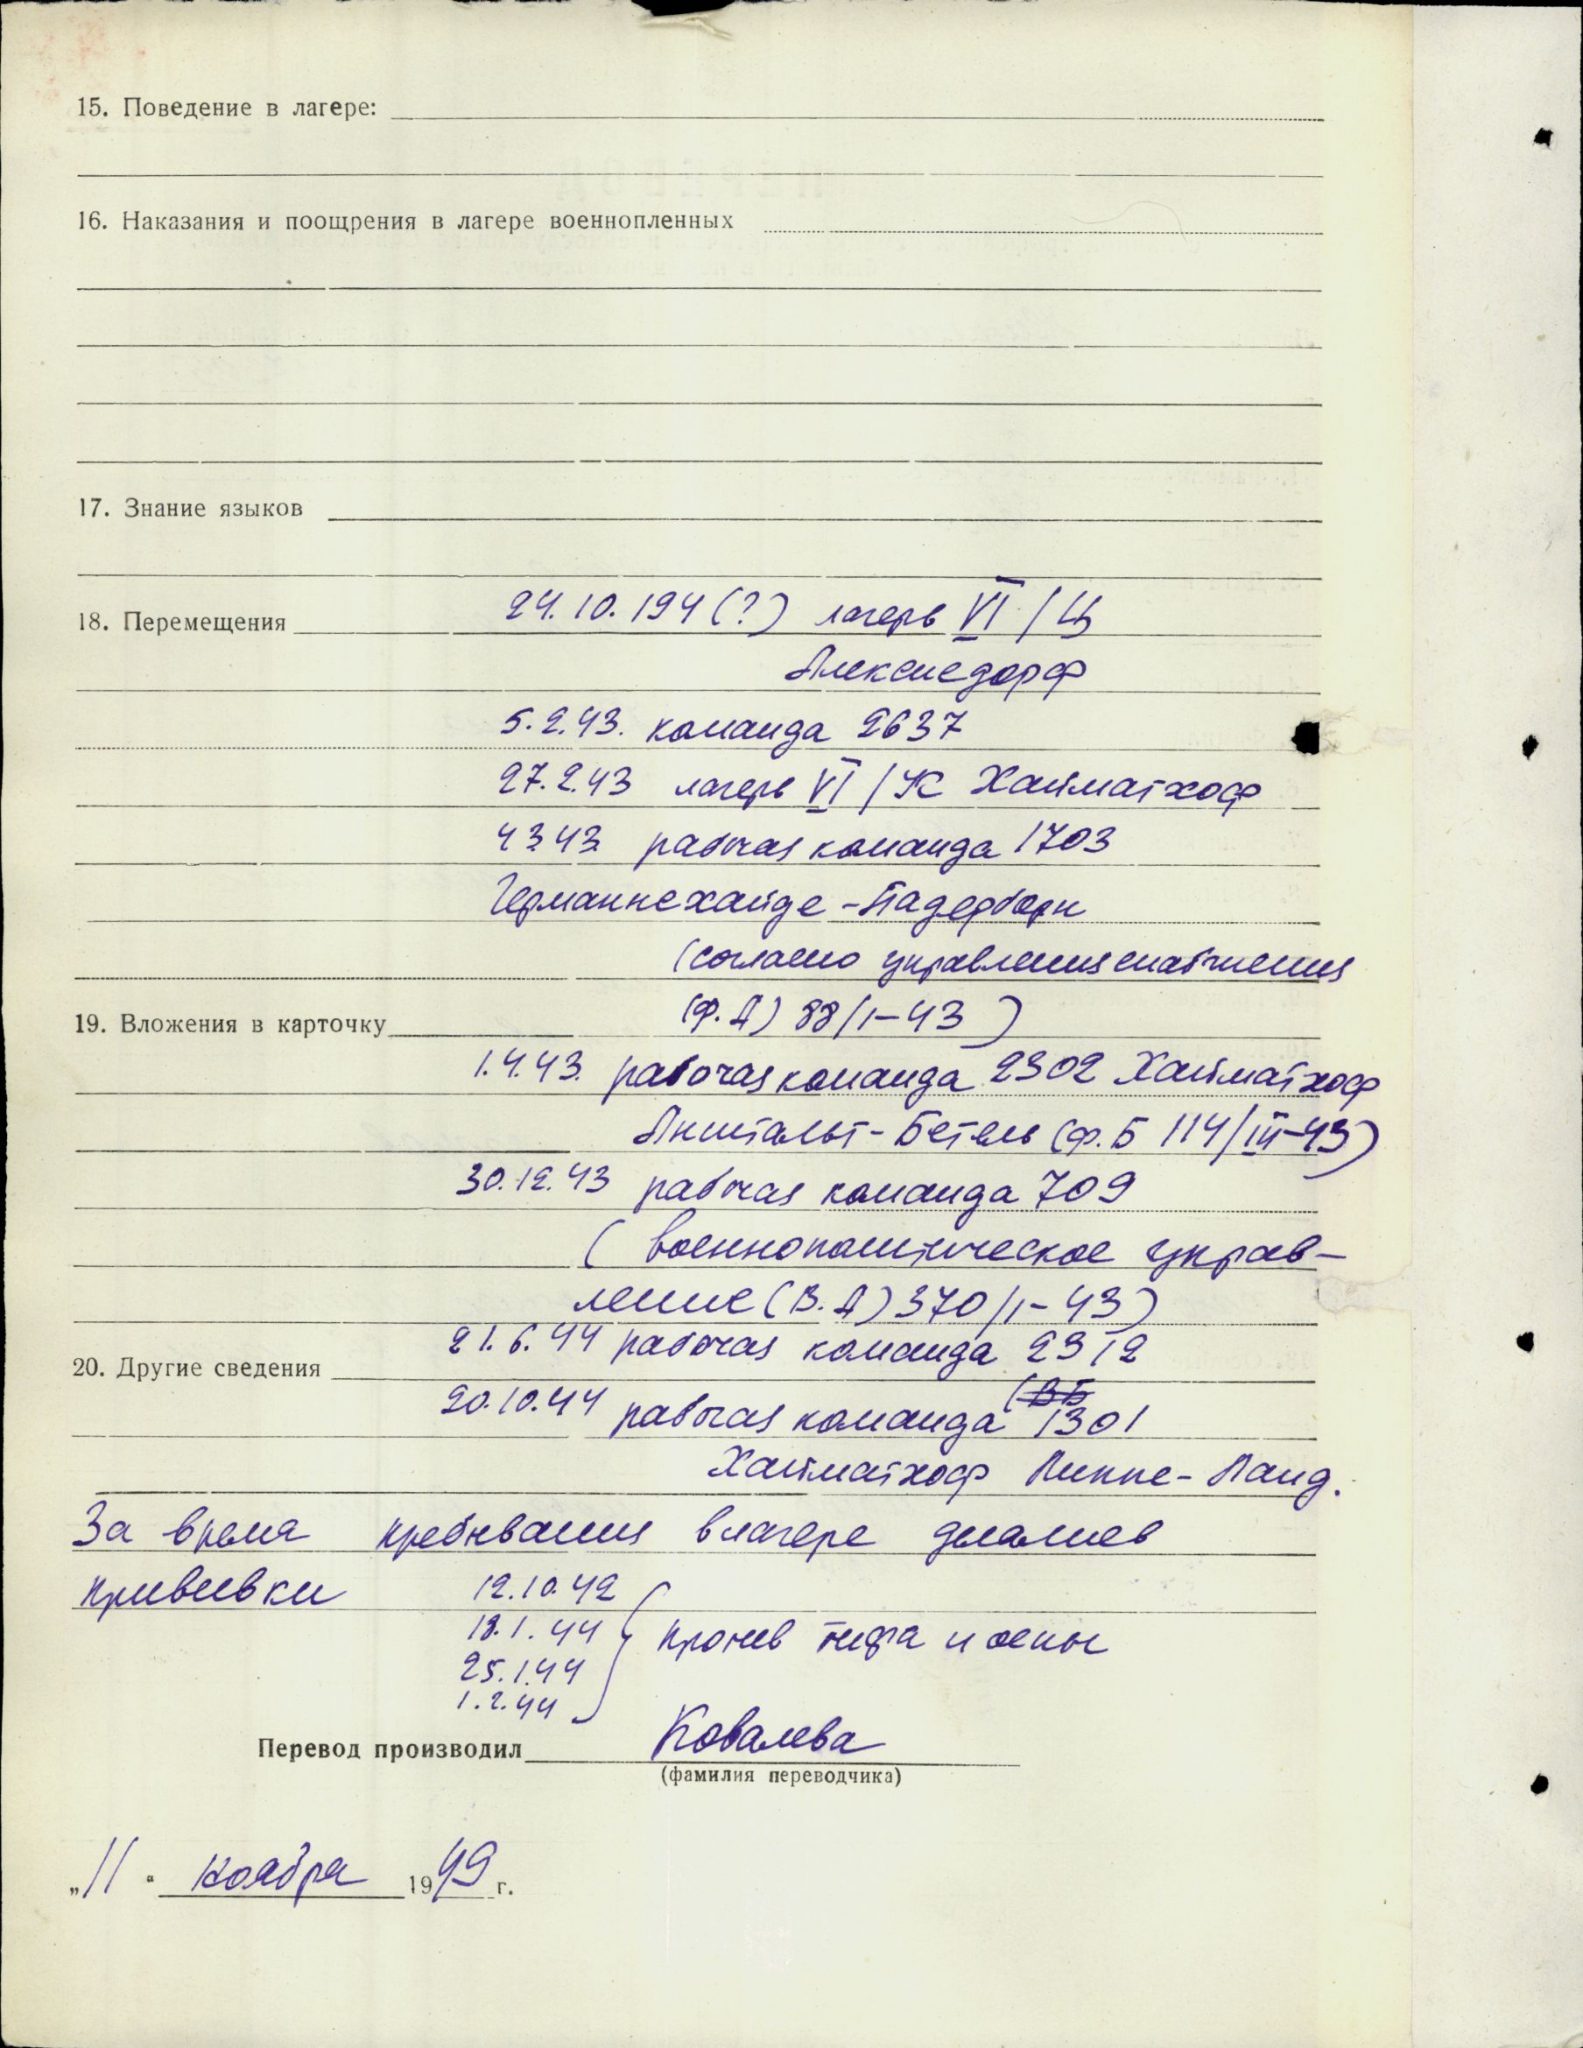 15. Поведение в лагере:
16. Наказания и поощрения в лагере военнопленных
17. Знание языков
18. Перемещения 24.10.194(?) лагерь VI/Ц
Алексисдорф
5.2.43. команда 2637
27.2.43 лагерь VI/К Хайматхоф
4.3.43 рабочая команда 1703
Германнехайде-Падерборн
(согласно управления снабжения
19. Вложения в карточку (Ф.А) 88/I-43)
1.4.43. рабочая команда 2302 Хайматхоф
Анштальт-Бетель (ф.Б 114/III-43)
30.12.43 рабочая команда 709
(военнополитическое управ-
ление (В.А) 370/I-43)
21.6.44 рабочая команда 2312
20. Другие сведения
(ВБ
20.10.44 рабочая команда 1301
Хайматхоф Липпе-Ланд.
За время пребывания в лагере делались
прививки 12.10.42
18.1.44 против тифа и оспы
25.1.44
1.2.44
Перевод производил Ковалева
(фамилия переводчика)
„11" ноября 1949 г.